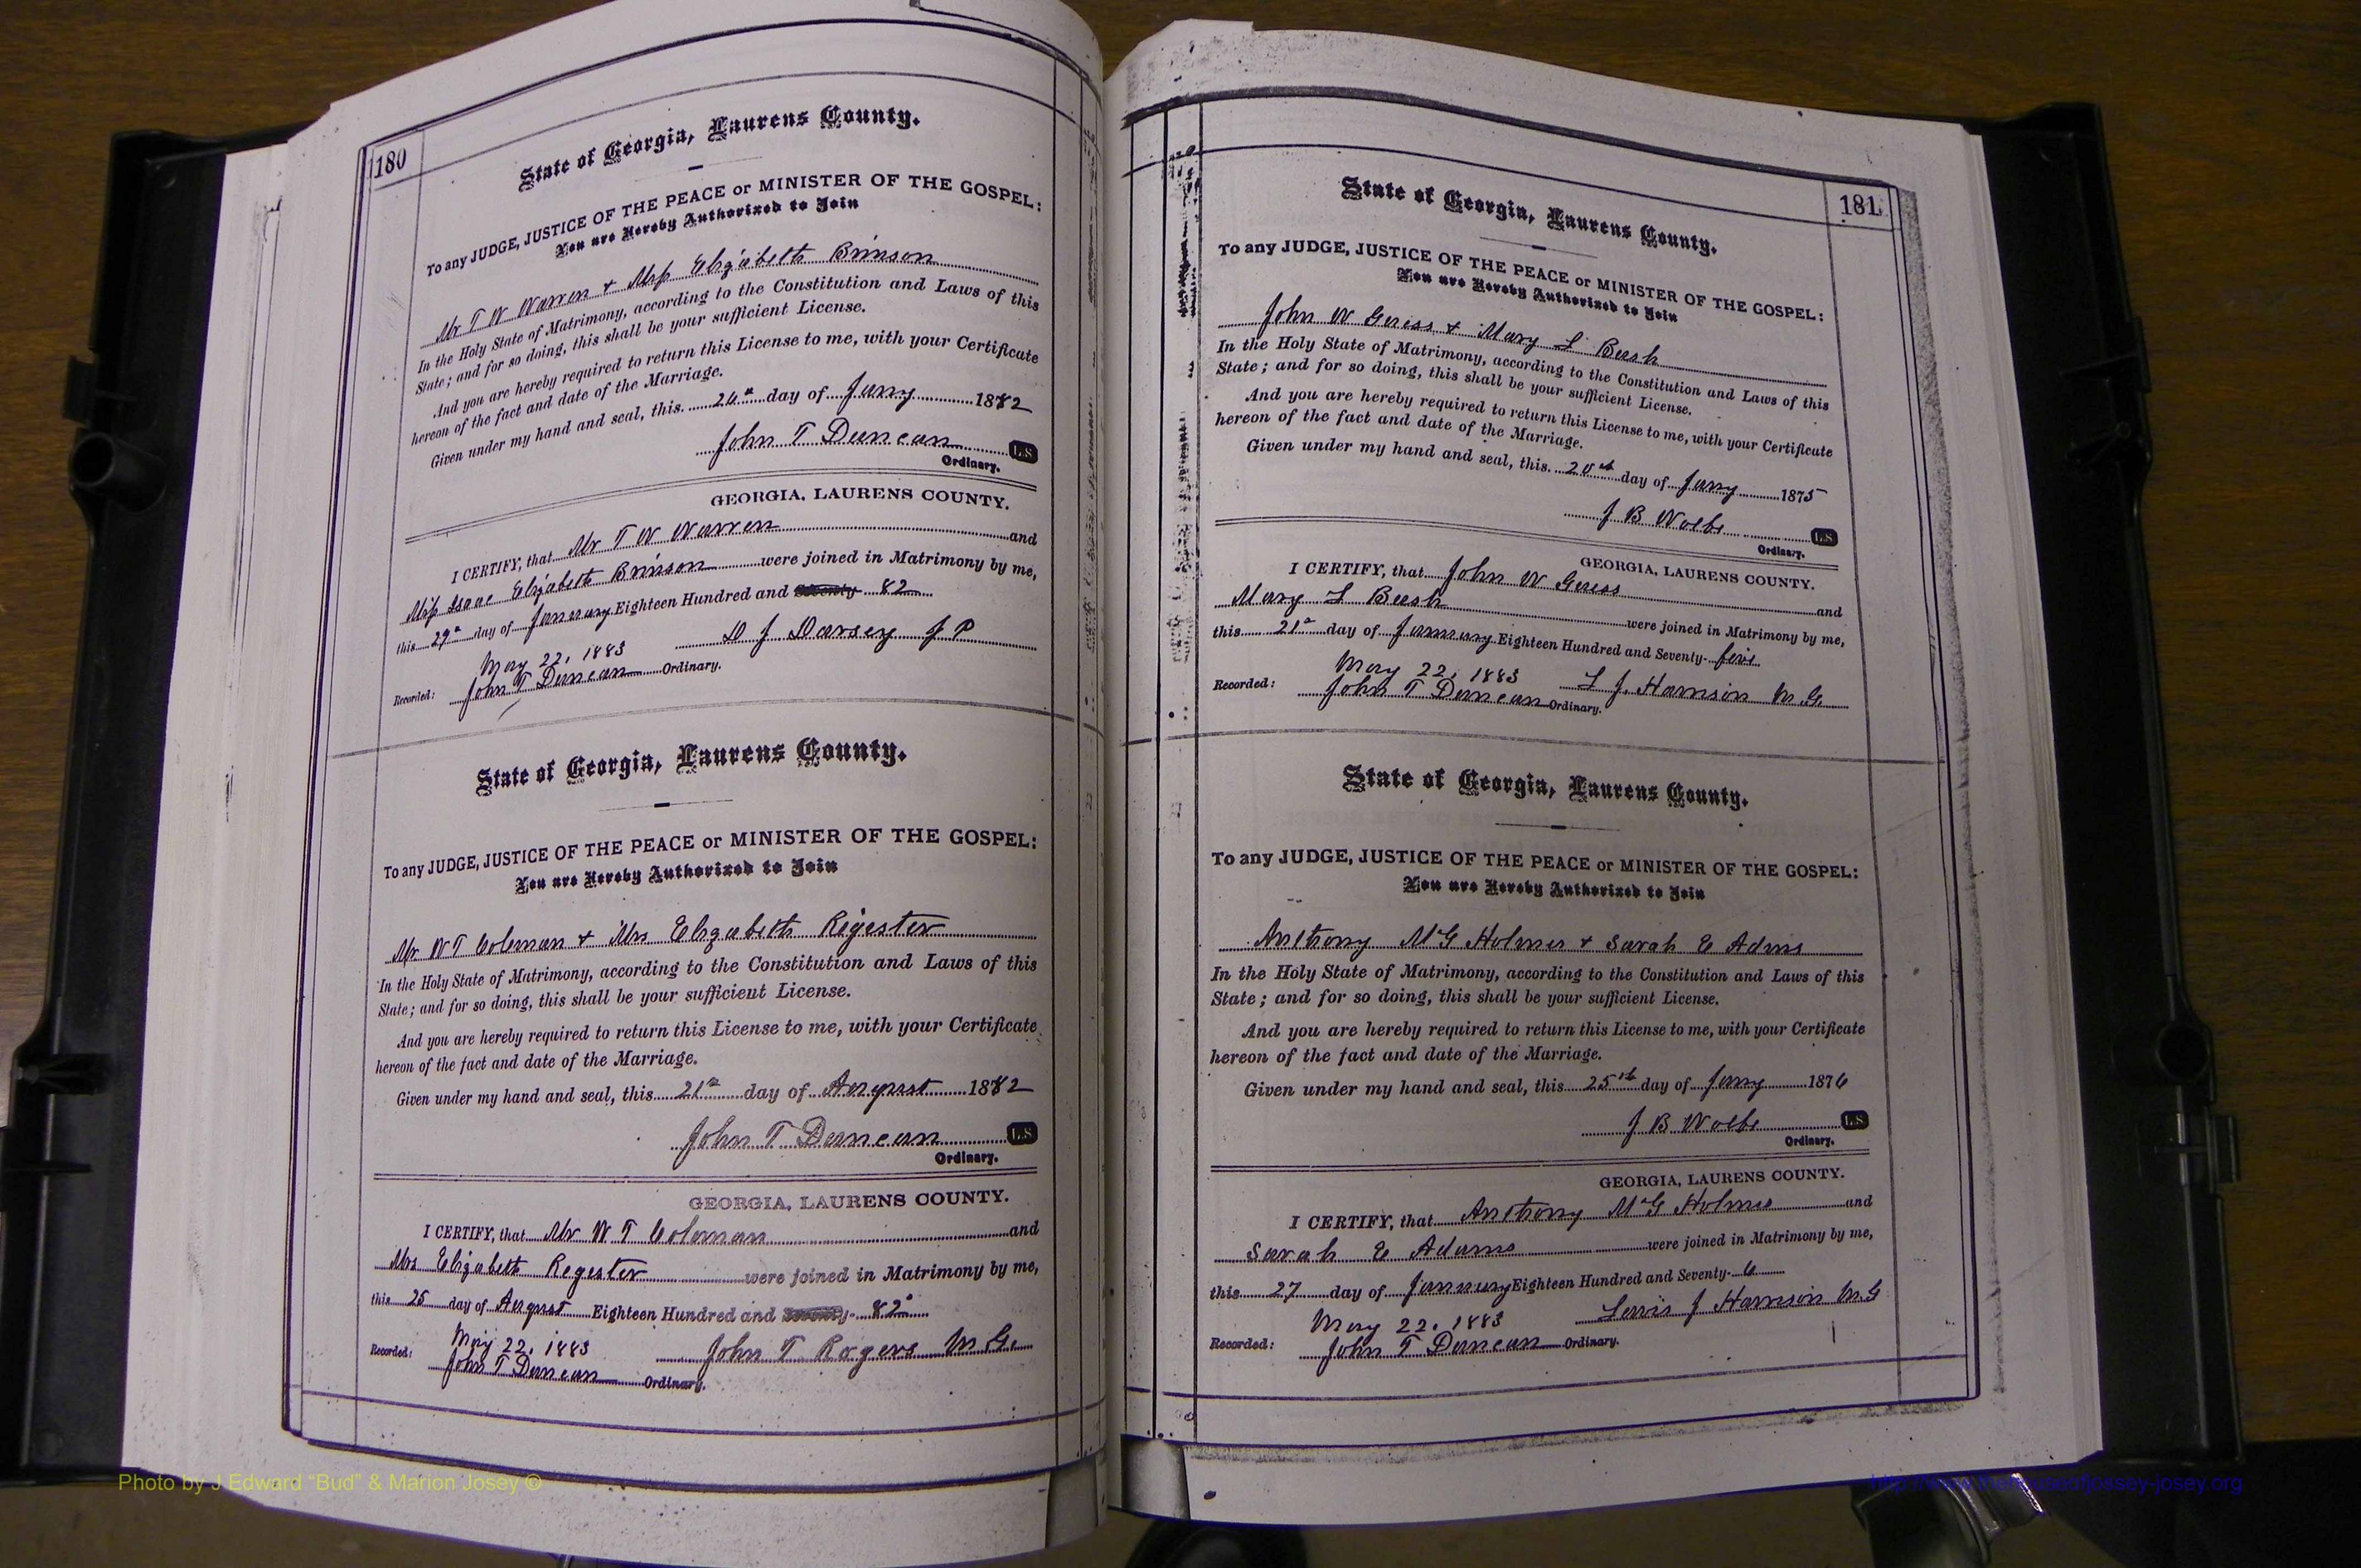 180
State of Georgia, Laurens County.
To any JUDGE, JUSTICE OF THE PEACE or MINISTER OF THE GOSPEL:
You are Hereby Authorized to Join
Mr T W Warren + Miss Elizabeth Brinson
In the Holy State of Matrimony, according to the Constitution and Laws of this
State; and for so doing, this shall be your sufficient License.
And you are hereby required to return this License to me, with your Certificate
hereon of the fact and date of the Marriage.
Given under my hand and seal, this day of Jany 1882
John T Duncan L.S.
Ordinary.
GEORGIA, LAURENS COUNTY.
I CERTIFY, that Mr T W Warren and
Miss Elizabeth Brinson were joined in Matrimony by me,
this 29th day of January Eighteen Hundred and Seventy 82
D J Darsey J P
May 22, 1883
Recorded: John T Duncan Ordinary.
State of Georgia, Laurens County.
To any JUDGE, JUSTICE OF THE PEACE or MINISTER OF THE GOSPEL:
You are Hereby Authorized to Join
Mr W T Coleman + Mrs Elizabeth Rigester
In the Holy State of Matrimony, according to the Constitution and Laws of this
State; and for so doing, this shall be your sufficient License.
And you are hereby required to return this License to me, with your Certificate
hereon of the fact and date of the Marriage.
Given under my hand and seal, this 21st day of August 1882
John T Duncan L.S.
Ordinary.
GEORGIA, LAURENS COUNTY.
I CERTIFY, that Mr W T Coleman and
Mrs Elizabeth Regester were joined in Matrimony by me,
this 25 day of August Eighteen Hundred and Seventy- 82
May 22, 1883 John T Rogers M.G.
Recorded: John T Duncan Ordinary.
181
State of Georgia, Laurens County.
To any JUDGE, JUSTICE OF THE PEACE or MINISTER OF THE GOSPEL:
You are Hereby Authorized to Join
John W Guess + Mary L Bush
In the Holy State of Matrimony, according to the Constitution and Laws of this
State; and for so doing, this shall be your sufficient License.
And you are hereby required to return this License to me, with your Certificate
hereon of the fact and date of the Marriage.
Given under my hand and seal, this 20th day of Jany 1875
J B Wolfe L.S.
Ordinary.
GEORGIA, LAURENS COUNTY.
I CERTIFY, that John W Guess and
Mary L Bush were joined in Matrimony by me,
this 21st day of January Eighteen Hundred and Seventy- five
May 22, 1883 L J. Harrison M.G.
Recorded: John T Duncan Ordinary.
State of Georgia, Laurens County.
To any JUDGE, JUSTICE OF THE PEACE or MINISTER OF THE GOSPEL:
You are Hereby Authorized to Join
Anthony McG Holmes + Sarah E Adms
In the Holy State of Matrimony, according to the Constitution and Laws of this
State; and for so doing, this shall be your sufficient License.
And you are hereby required to return this License to me, with your Certificate
hereon of the fact and date of the Marriage.
Given under my hand and seal, this 25th day of Jany 1876
J B Wolfe L.S.
Ordinary.
GEORGIA, LAURENS COUNTY.
I CERTIFY, that Anthony McG Holmes and
Sarah E Adams were joined in Matrimony by me,
this 27 day of January Eighteen Hundred and Seventy- 6
May 22, 1883 Lewis J Harrison M.G
Recorded: John T Duncan Ordinary.
Photo by J Edward “Bud” & Marion Josey ©
http://www.thehouseofjossey-josey.org